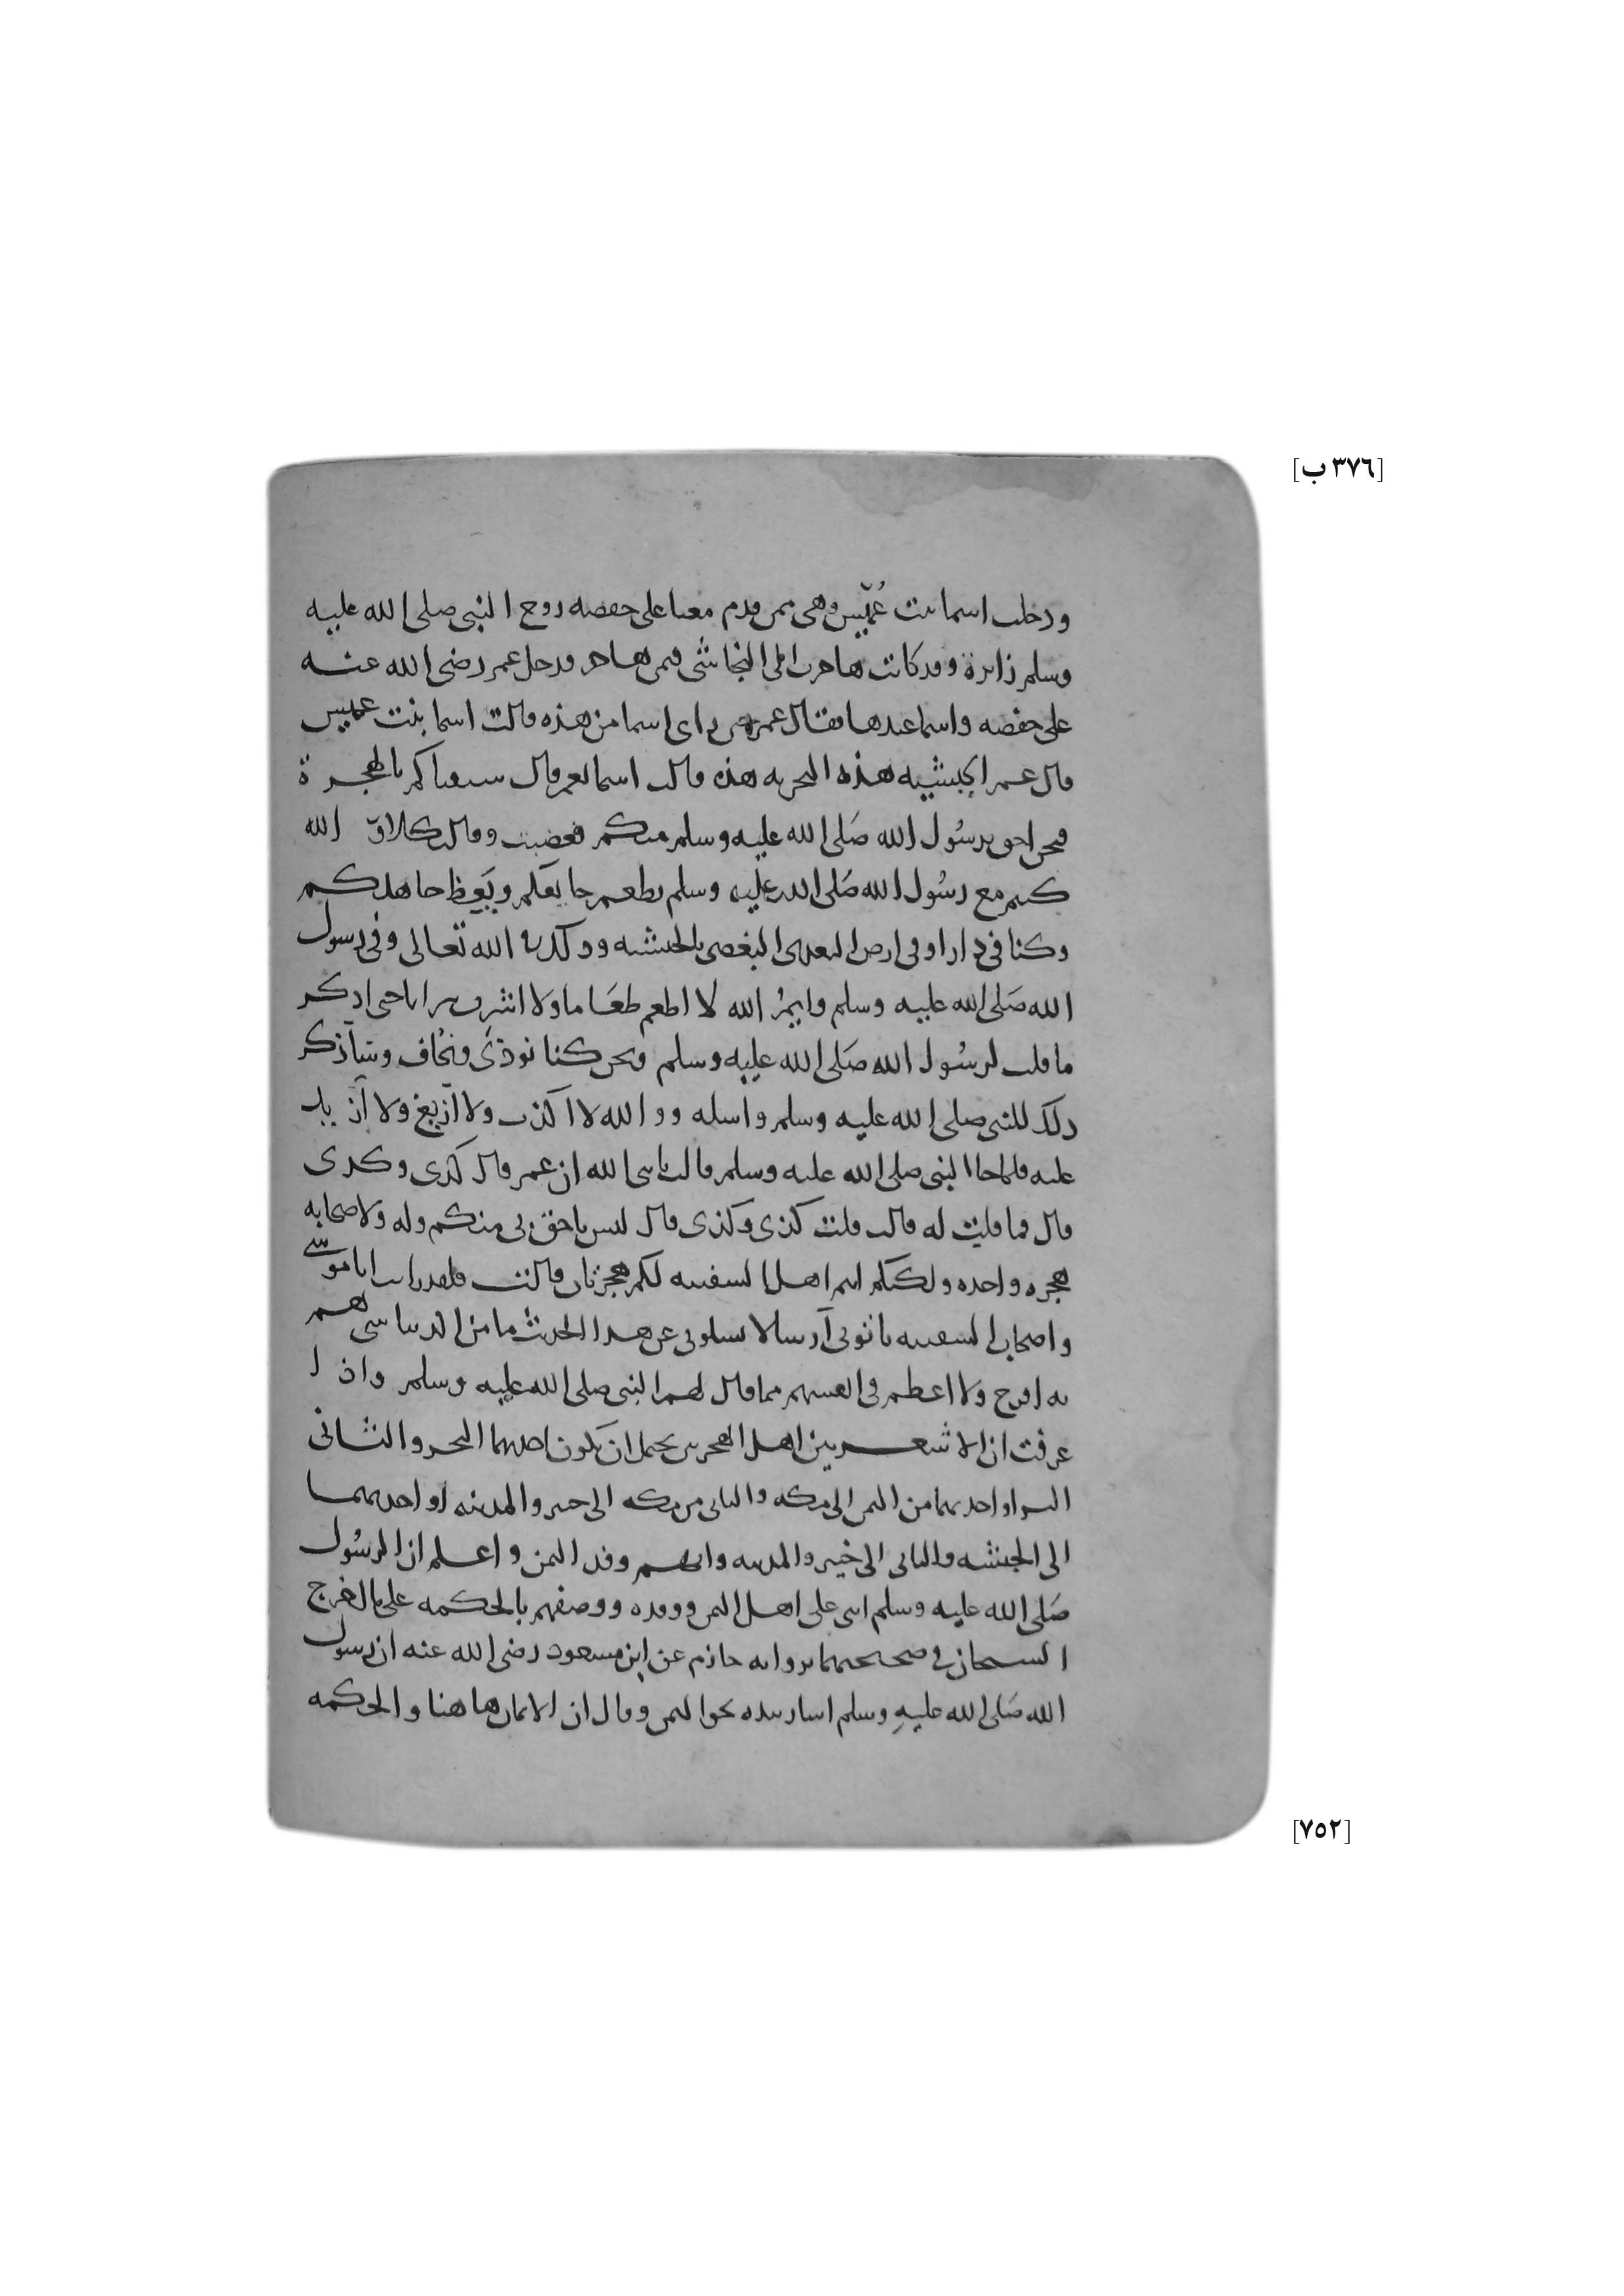 [٣٧٦ ب]
ودخلت اسما بنت عُمَيّس وهى ممن قدم معنا على حفصه زوج النبى صلى الله عليه
وسلم زائرة وقد كانت هاجرت الى النجاشى فمن هاجر فدخل عمر رضى الله عنه
على حفصه واسما عندها فقال عمر حين راى اسما من هذه قالت اسما بنت عميس
قال عمر الحبشيه هذه البحريه هذه قالت اسما نعم قال سبقناكم بالهجرة
فنحن احق برسُول الله صَلى الله عليه وسلم منكم فغضبت وقالت كلا والله
كنتم مع رسُول الله صَلى الله عليه وسلم يطعم جايعكم ويَعِظ جاهلكم
وكنا فى دار او فى ارض البعدى البغضى بالحبشه وذلك فى الله تعالى وفى رسول
الله صَلى الله عليه وسلم وايمُ الله لا اطعم طعَاما ولا اشرب شرابا حتى اذكر
ما قلت لرسُول الله صَلى الله عليه وسلم ونحن كنا نوذى ونُخاف وسَأذكر
ذلك للنبى صلى الله عليه وسلم واسله ووالله لا اكذب ولا ازيغ ولا ازيد
عليه فلما جا النبى صلى الله عليه وسلم قالت يا نبى الله ان عمر قال كذى وكذى
قال فما قلتِ له قالت قلت كذى وكذى قال ليس باحق بى منكم وله ولاصحابه
هجره واحده ولكم انتم اهل السفينه هجرتان قالت فلقد رايت ابا موسى
واصحاب السفينه ياتونى أرسالا يسلونى عن هذا الحديث ما من الدنيا شى هم
به افرح ولا اعظم فى انفسهم مما قال لهم النبى صلى الله عليه وسلم واذا
عرفت ان الاشعريين اهل الهجرتين يحتمل ان يكون احدهما البحر والثانى
البر او احديهما من اليمن الى مكه والثانى من مكه الى خيبر والمدينه او احديهما
الى الحبشه والثانى الى خيبر والمدينه وانهم وفد اليمن واعلم ان الرسُول
صَلى الله عليه وسلم اثنى على اهل اليمن ووفده ووصفهم بالحكمه على بالفرج
الشيخان فى صحيحيهما بروايه حازم عن ابن مسعود رضى الله عنه ان رسول
الله صَلى الله عليهِ وسلم اشار بيده نحو اليمن وقال ان الايمان هاهنا والحكمه
[٧٥٢]